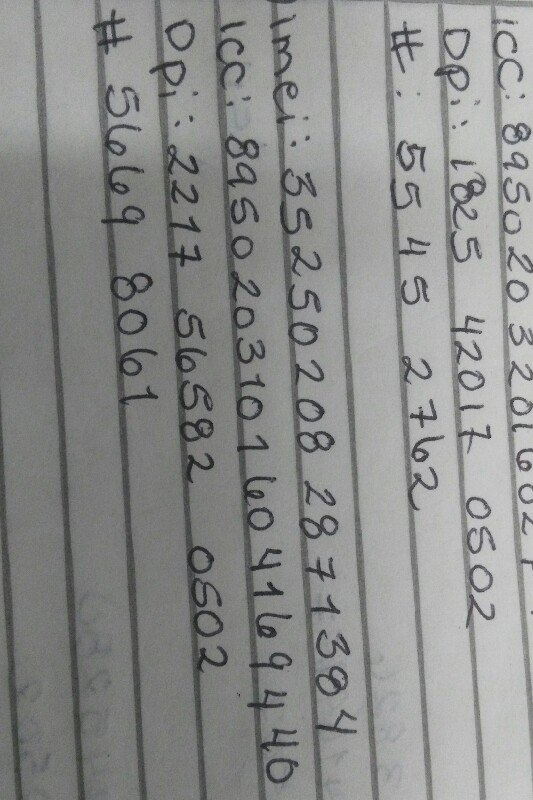 icc: 8950203201602
Dpi: 1825 42017 0502
#: 5545 2762
imei: 35250208 2871384
icc: 8950203101604169440
Dpi: 2217 56582 0502
# 5669 8061